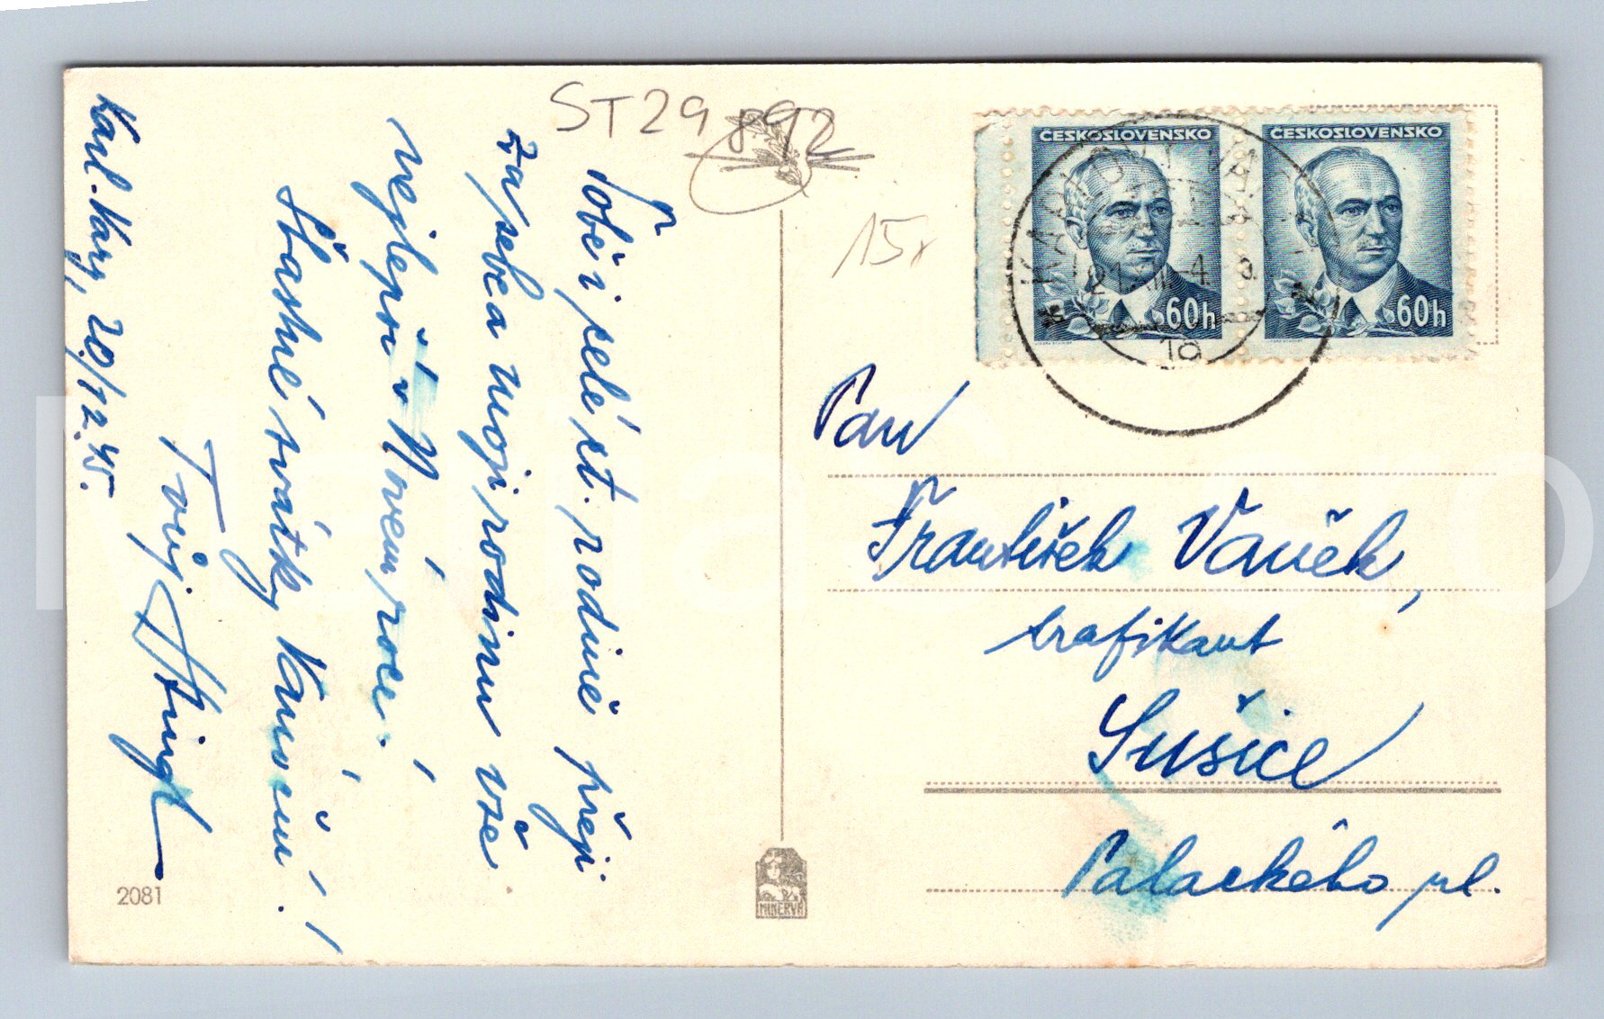 ST29892
15,-
ČESKOSLOVENSKO
60h
ČESKOSLOVENSKO
60h
KARLOVY VARY
21.XII.4
1a
Karl. Vary, 20/12.45.
Tobě i celé ct. rodině přeji
za sebe a moji rodinu vše
nejlepší v Novém roce.
Šťastné svátky Vánoční!!
Tvůj
Pan
František Vaněk,
trafikant
Sušice
Palackého pl.
2081
MINERVA